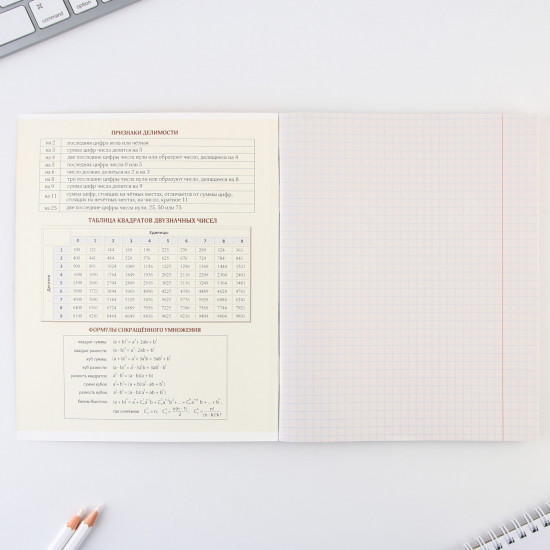 command
option
ПРИЗНАКИ ДЕЛИМОСТИ
на 2 последняя цифра нуль или чётная
на 3 сумма цифр числа делится на 3
на 4 две последние цифры числа нули или образуют число, делящееся на 4
на 5 последняя цифра числа 0 или 5
на 6 число должно делиться на 2 и на 3
на 8 три последние цифры числа нули или образуют число, делящееся на 8
на 9 сумма цифр числа делится на 9
на 11 сумма цифр, стоящих на чётных местах, отличается от суммы цифр,
стоящих на нечётных местах, на число, кратное 11
на 25 две последние цифры числа нули, 25, 50 или 75
ТАБЛИЦА КВАДРАТОВ ДВУЗНАЧНЫХ ЧИСЕЛ
Единицы
Десятки 0 1 2 3 4 5 6 7 8 9
1 100 121 144 169 196 225 256 289 324 361
2 400 441 484 529 576 625 676 729 784 841
3 900 961 1024 1089 1156 1225 1296 1369 1444 1521
4 1600 1681 1764 1849 1936 2025 2116 2209 2304 2401
5 2500 2601 2704 2809 2916 3025 3136 3249 3364 3481
6 3600 3721 3844 3969 4096 4225 4356 4489 4624 4761
7 4900 5041 5184 5329 5476 5625 5776 5929 6084 6241
8 6400 6561 6724 6889 7056 7225 7396 7569 7744 7921
9 8100 8281 8464 8649 8836 9025 9216 9409 9604 9801
ФОРМУЛЫ СОКРАЩЁННОГО УМНОЖЕНИЯ
квадрат суммы (a + b)² = a² + 2ab + b²
квадрат разности (a - b)² = a² - 2ab + b²
куб суммы (a + b)³ = a³ + 3a²b + 3ab² + b³
куб разности (a - b)³ = a³ - 3a²b + 3ab² - b³
разность квадратов a² - b² = (a - b)(a + b)
сумма кубов a³ + b³ = (a + b)(a² - ab + b²)
разность кубов a³ - b³ = (a - b)(a² + ab + b²)
бином Ньютона
где сочетания